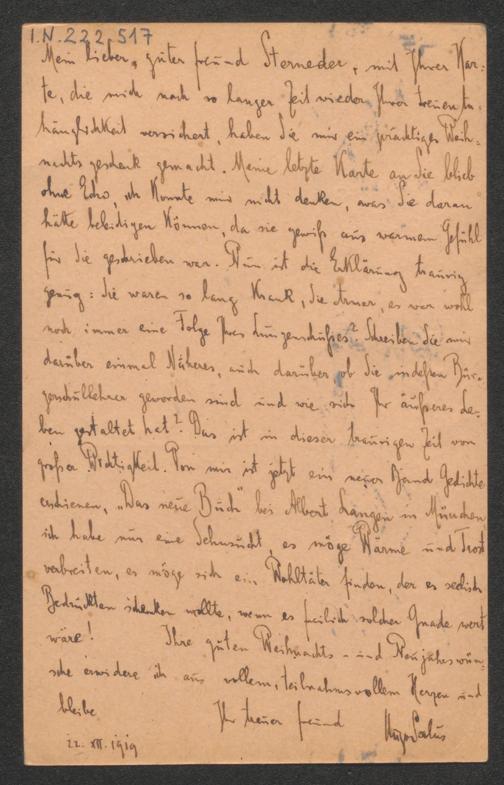 I.N. 222.517
Mein lieber, guter Freund Sterneder, mit Ihrer Kar-
te, die mich nach so langer Zeit wieder Ihrer treuen An-
hänglichkeit versichert, haben Sie mir ein prächtiges Weih-
nachtsgeschenk gemacht. Meine letzte Karte an Sie blieb
ohne Echo, ich konnte mir nicht denken, was Sie daran
hätte beleidigen können, da sie gewiß aus warmem Gefühl
für Sie geschrieben war. Nun ist die Erklärung traurig
genug: Sie waren so lang krank, Sie Armer, es war wohl
noch immer eine Folge Ihres Lungenschußes? Schreiben Sie mir
darüber einmal Näheres, auch darüber ob Sie indeßen Bür-
gerschullehrer geworden sind und wie sich Ihr äußeres Le-
ben gestaltet hat? Das ist in dieser traurigen Zeit von
großer Wichtigkeit. Von mir ist jetzt ein neuer Band Gedichte
erschienen, "Das neue Buch" bei Albert Langen in München
ich habe nur eine Sehnsucht, es möge Wärme und Trost
verbreiten, es möge sich ein Wohltäter finden, der es seelisch
Bedrückten schenken wollte, wenn es freilich solcher Gnade wert
wäre! Ihre guten Weihnachts- und Neujahrswün-
sche erwidere ich aus vollem, teilnahmsvollem Herzen und
bleibe Ihr treuer Freund Hugo Salus
22. XII. 1919